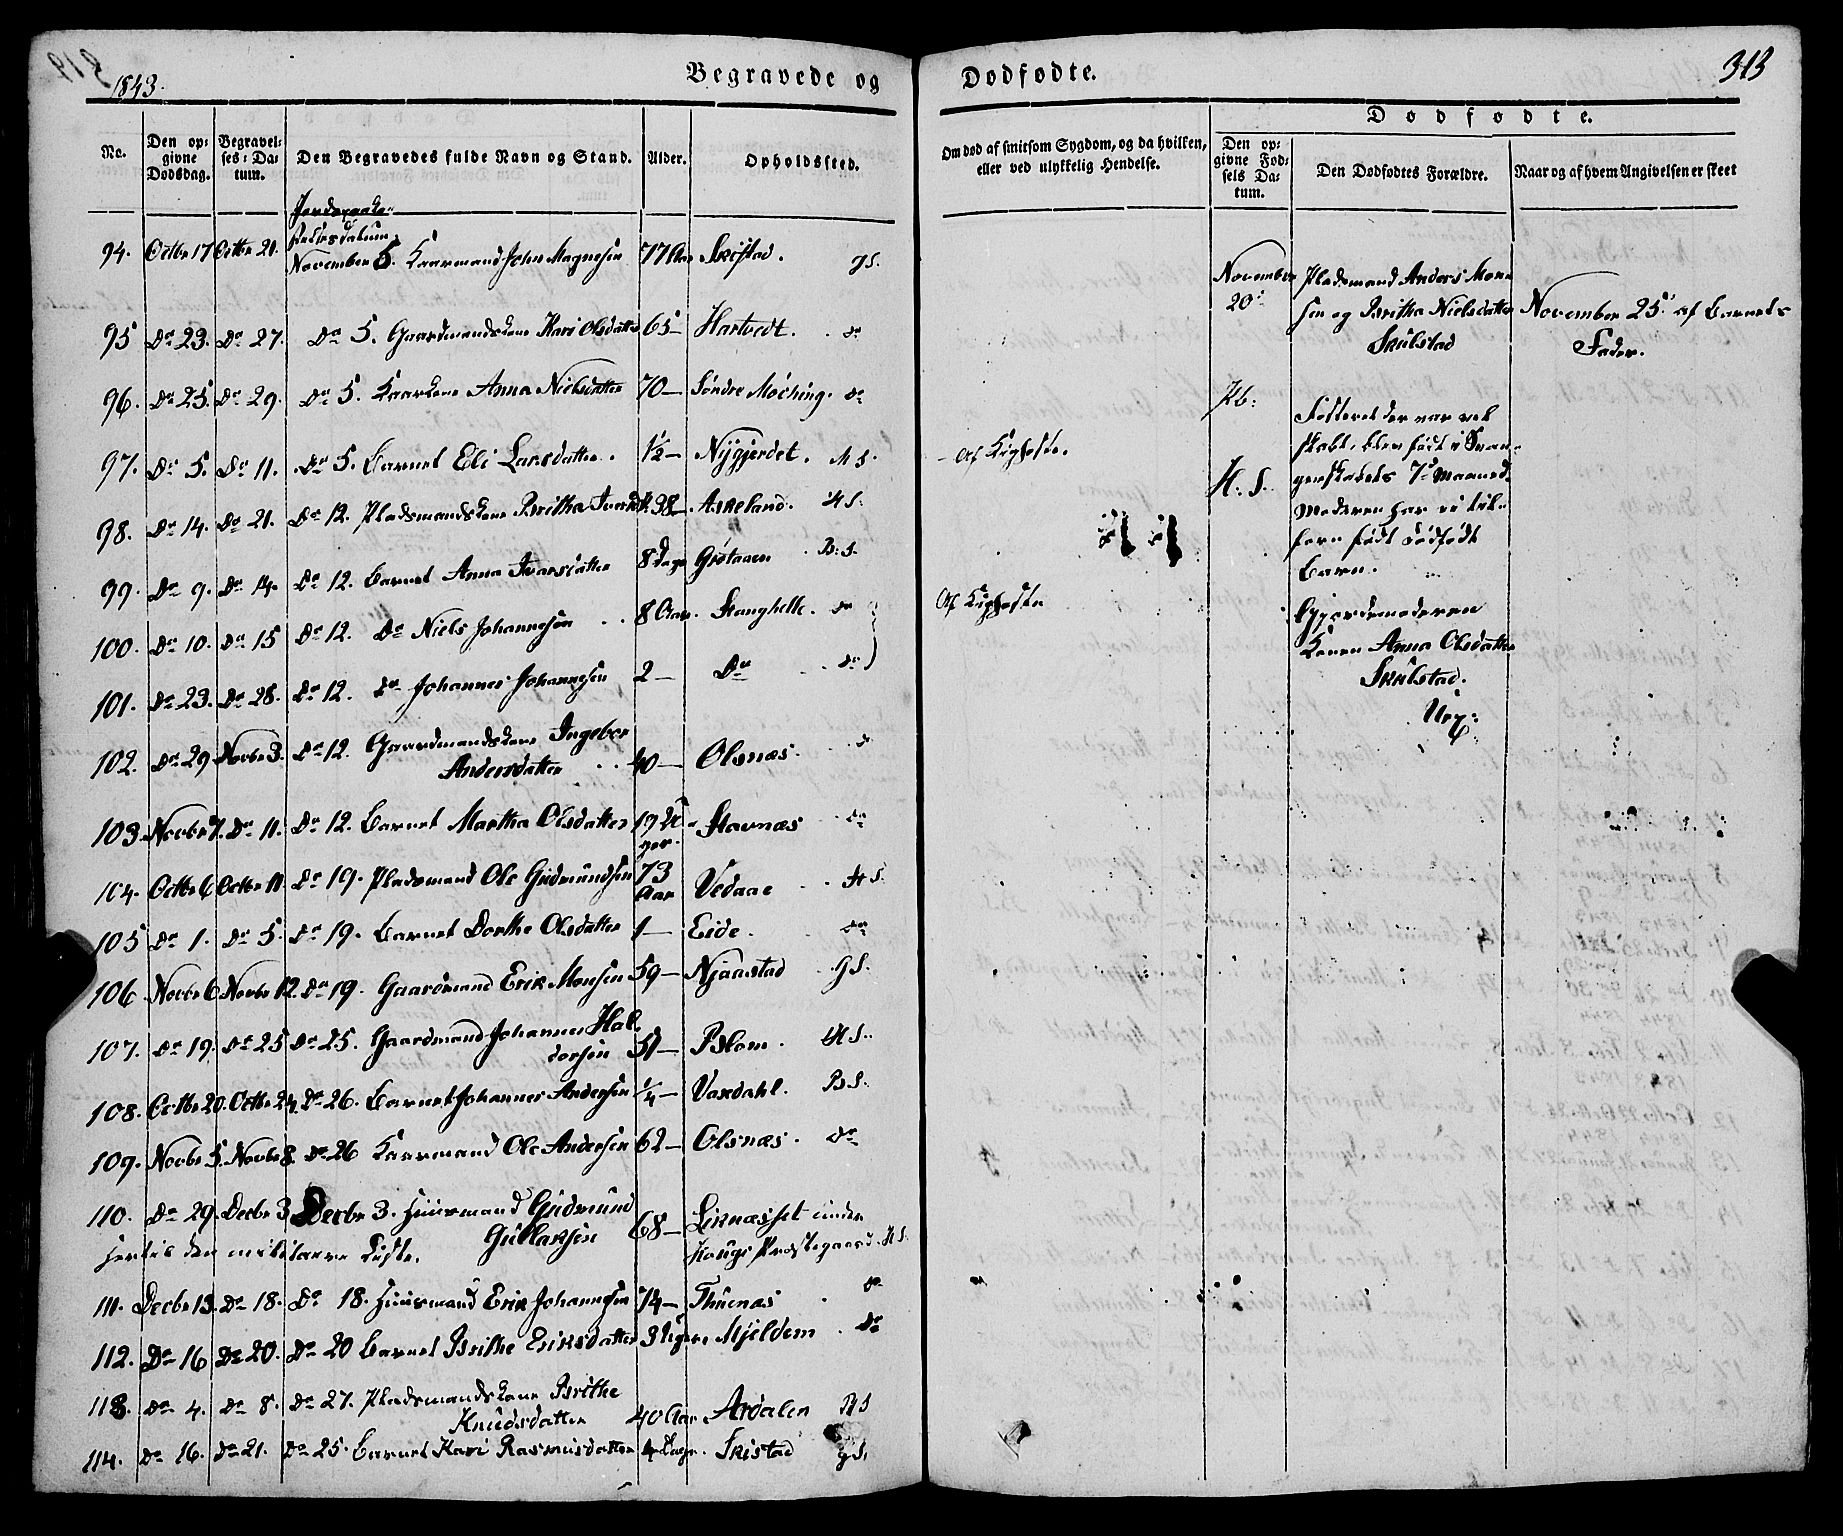 1843.
Begravede og
No.
Den op-
givne
Dødsdag.
Begravel-
ses-Da-
tum.
Den Begravedes fulde Navn og Stand.
Alder.
Opholdssted.
Jordspaaka-
stelsesdatum.
94. Octbr 17 Octbr 21. November 5. Kaarmand John Magnesen 77 Aar Skistad. gS.
95 Do 23. Do 27. Do 5. Gaardmandskone Kari Olsdatter 65– Hartvedt. Do
96. Do 25. Do 29. Do 5. Kaarkone Anna Nielsdatter 70– Søndre Møching. Do
97. Do 5. Do 11. Do 5. Barnet Eli Larsdatter. 1½– Nygjerdet. MS.
98. Do 14. Do 21. Do 12. Pladsmandskone Britha Ivarsd. 38– Askeland. HS.
99. Do 9. Do 14. Do 12. Barnet Anna Ivarsdatter 8 Dage Grøtaaen B:S.
100. Do 10. Do 15 Do 12. Do Niels Johannesen 8 Aar. Stanghelle. Do
101. Do 23. Do 28. Do 12. Do Johannes Johannesen 2– Do Do
102. Do 29 Novbr 3. Do 12. Gaardmandskone Ingebor
Andersdatter 40– Olsnæs. Do
103. Novbr 7. Do 11. Do 12. Barnet Martha Olsdatter 19 U-
ger. Stavnæs Do
104. Octbr 6 Octbr 11. Do 19. Pladsmand Ole Gudmundsen 73
Aar Vedaae HS.
105 Do 1. Do 5. Do 19. Barnet Dorthe Olsdatter 1– Eide. Do
106 Novbr 6. Novbr 12. Do 19. Gaardmand Erik Monsen 59– Njaastad gS.
107. Do 19. Do 25 Do 25. Gaardmand Johannes Hal-
dorsen 51– Blom. HS.
108. Octbr 20. Octbr 24. Do 26. Barnet Johannes Andersen ¼– Vaxdahl. BS.
109. Novbr 5. Novbr 8. Do 26 Kaarmand Ole Andersen 62– Olsnæs. Do
110. Do 29. Decbr 3. Decbr 3. Huusmand Gudmund
Gullaksen 68– Leknæsset under
Hougs Præstegaard. HS.
den militaire Liste.
111. Decbr 13. Do 18. Do 18. Huusmand Erik Johannesen 74– Thuenæs Do
112. Do 16 Do 20. Do 20 Barnet Brithe Eriksdatter 3 Uger. Mjeldem Do
113 Do 4. Do 8. Do 27. Pladsmandskone Brithe
Knudsdatter 40 Aar. Ardalen BS
114. Do 16. Do 21. Do 25. Barnet Kari Rasmusdatter 4 Dage. Skistad gS.
Dødfødte.
313
Om død af smitsom Sygdom, og da hvilken,
eller ved ulykkelig Hendelse.
Dødfødte.
Den op-
givne Fød-
sels Da-
tum.
Den Dødfødtes Forældre.
Naar og af hvem Angivelsen er skeet
Af Kighoste.
Af Kighoste
November
20
Pladsmand Anders Mon-
sen og Britha Nielsdatter
Skulstad
November 25 af Barnets
Fader.
H. S.
Fosteret der var vel
skabt, blev født i Svan-
gerskabets 7de Maaned.
Moderen har ei til-
forn født dødfødt
Barn.
Gjordemoderen
Konen Anna Olsdatter
Skulstad.